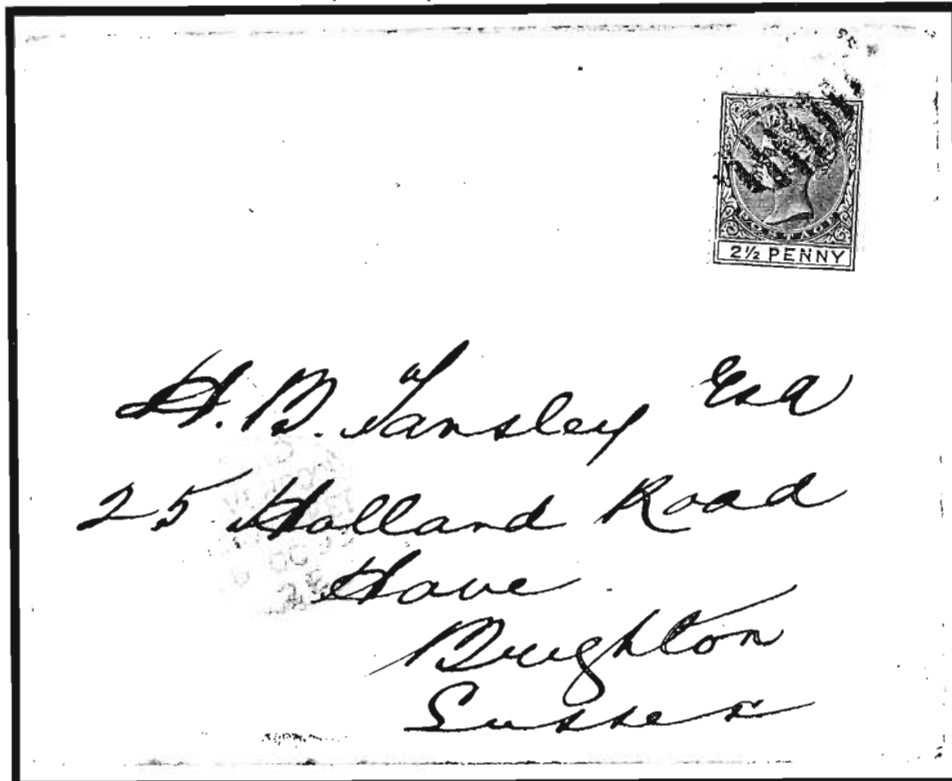 2½ PENNY
H. B. Tansley Esq
25 Holland Road
Hove
Brighton
Sussex